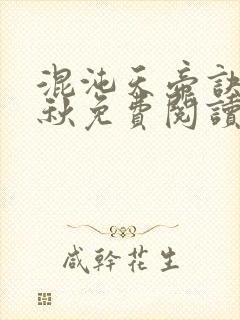 混沌天帝訣
秋免費閱讀
咸幹花生